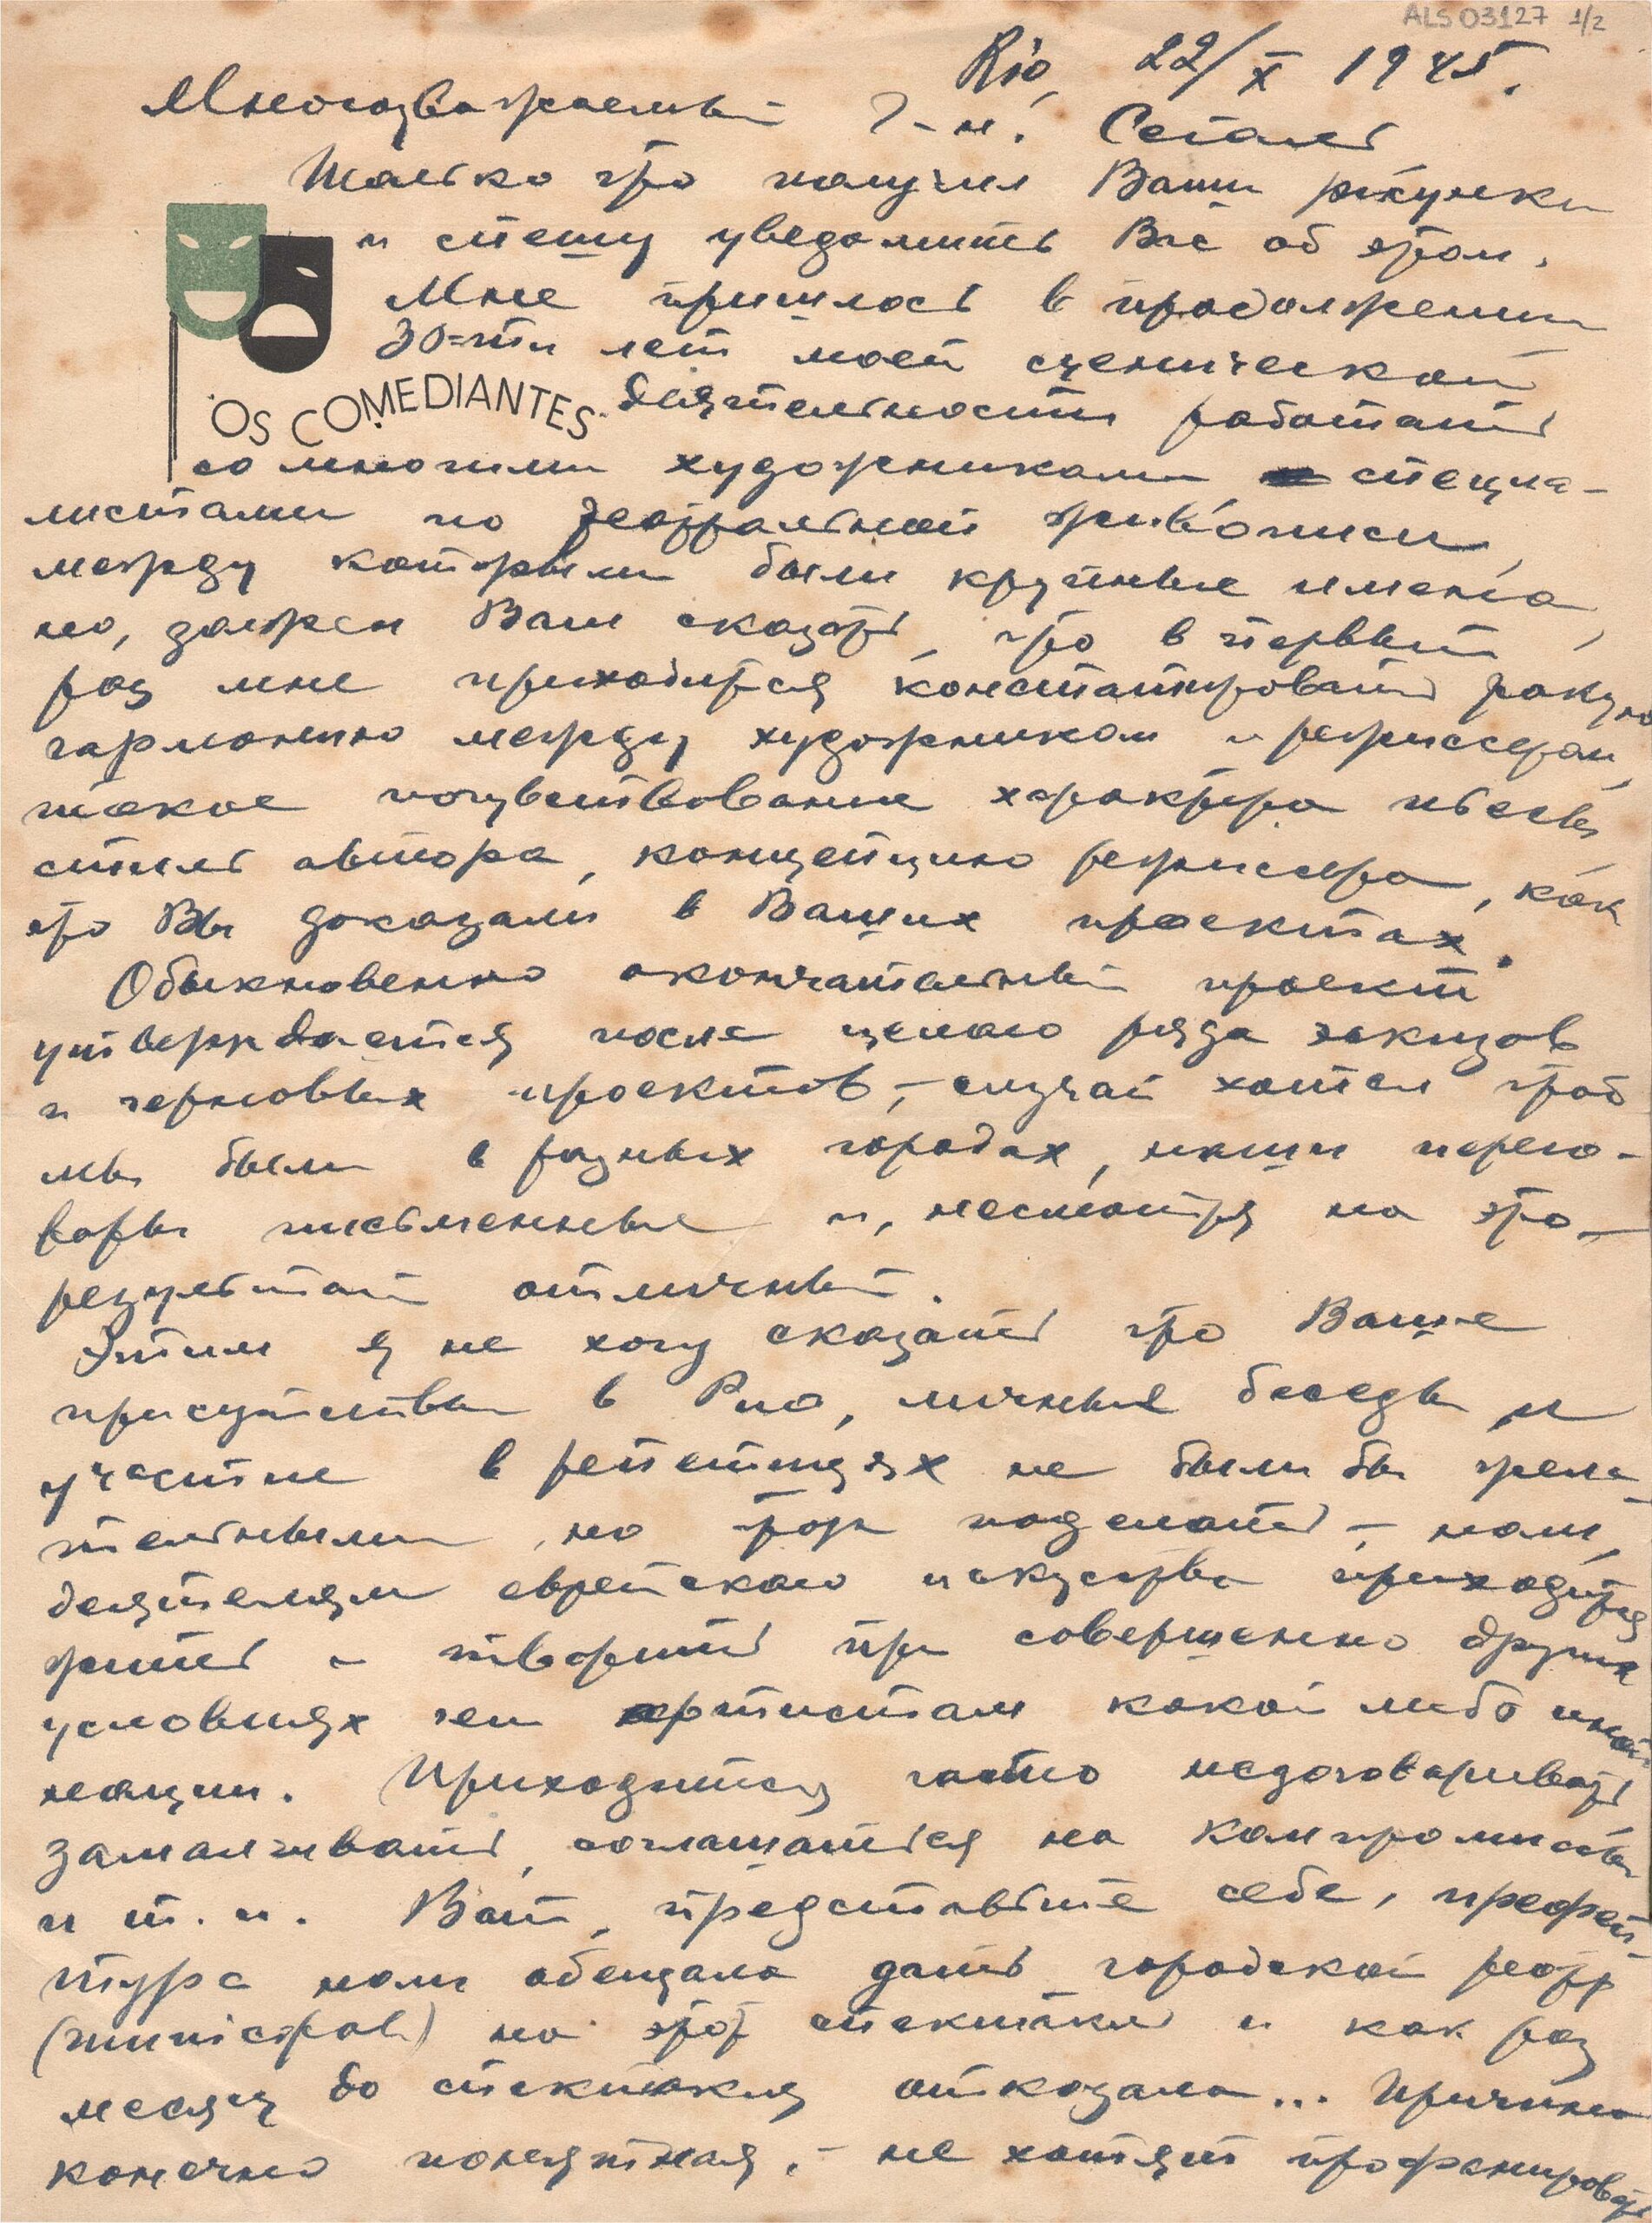 ALS 03127 1/2
Rio, 22/X 1945.
Многоуважаемый Г-н. Сегал
Только что получил Ваши рисунки
и спешу уведомить Вас об этом.
Мне пришлось в продолжении
30=ти лет моей сценической
OS COMEDIANTES
деятельности работать
со многими художниками специа-
листами по театральной живописи,
между которыми были крупные имена,
но, должен Вам сказать, что в первый
раз мне приходится констатировать такую
гармонию между художником и режиссером,
такое почувствование характера пьесы,
стиль автора, концепцию режиссера, как
это Вы доказали в Ваших проектах.
Обыкновенно окончательный проект
утверждается после целого ряда эскизов
и черновых проектов, – случай хотел чтоб
мы были в разных городах, наши перего-
воры письменные и, несмотря на это –
результат отличный.
Этим я не хочу сказать что Ваше
присутствие в Рио, личные беседы и
участие в репетициях не были бы жела-
тельными, но что поделать – нам,
деятелям еврейского искусства приходится
жить и творить при совершенно других
условиях чем артистам какой либо иной
нации. Приходится часто недоговаривать,
замалчивать, соглашаться на компромиссы
и т. п. Вот, представьте себе, префек-
тура нам обещала дать городской театр
(municipal) на этот спектакль и как раз
месяц до спектакля отказала... Причина
конечно понятная, – не хотят профанировать